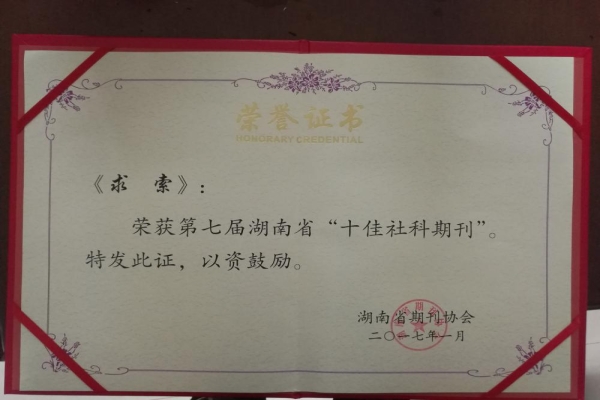 荣誉证书
HONORARY CREDENTIAL
《求 索》：
荣获第七届湖南省“十佳社科期刊”。
特发此证，以资鼓励。
湖南省期刊协会
二〇一七年一月